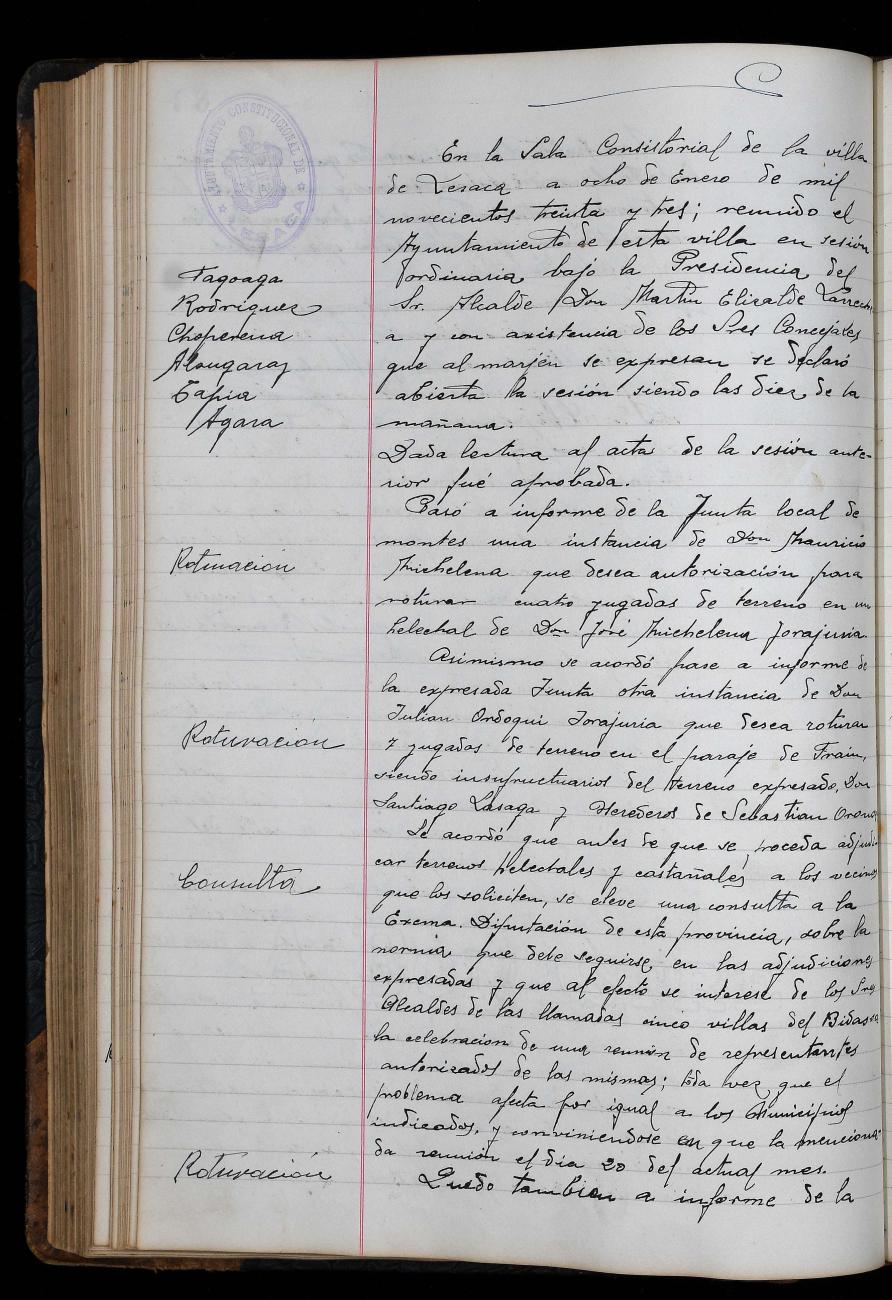 AYUNTAMIENTO CONSTITUCIONAL DE
LESACA
En la Sala Consistorial de la villa
de Lesaca a ocho de Enero de mil
novecientos treinta y tres; reunido el
Ayuntamiento de esta villa en sesión
ordinaria bajo la Presidencia del
Sr. Alcalde Don Martin Elizalde Larreche
a y con axistencia de los Sres Concejales
que al marjen se expresan se declaró
abierta la sesión siendo las diez de la
mañana.
Tagoaga
Rodriguez
Choperena
Alzugaray
Tapia
Agara
Dada lectura al acta de la sesión ante-
rior fué aprobada.
Rotuación
Pasó a informe de la Junta local de
montes una instancia de Don Mauricio
Michelena que desea autorización para
roturar cuatro yugadas de terreno en un
helechal de Dn José Michelena Jorajuria
Roturación
Asimismo se acordó pase a informe de
la expresada Junta otra instancia de Don
Julian Ordoqui Jorajuria que desea roturar
7 yugadas de terreno en el paraje de Frain,
siendo insufructuarios del terreno expresado, Don
Santiago Lasaga y Herederos de Sebastian Oronoz
Consulta
Se acordó que antes de que se proceda adjudi
car terrenos helechales y castañales a los vecinos
que los soliciten, se eleve una consulta a la
Exema. Diputación de esta provincia, sobre la
norma que debe seguirse en las adjudiciones
expresadas y que al efecto se interese de los Sres
Alcaldes de las llamadas cinco villas del Bidasoa
la celebracion de una reunión de representantes
autorizados de las mismas; toda vez que el
problema afecta por igual a los Municipios
indicados, y conviniendose en que la menciona-
da reunión el dia 20 del actual mes.
Roturación
Quedo tambien a informe de la